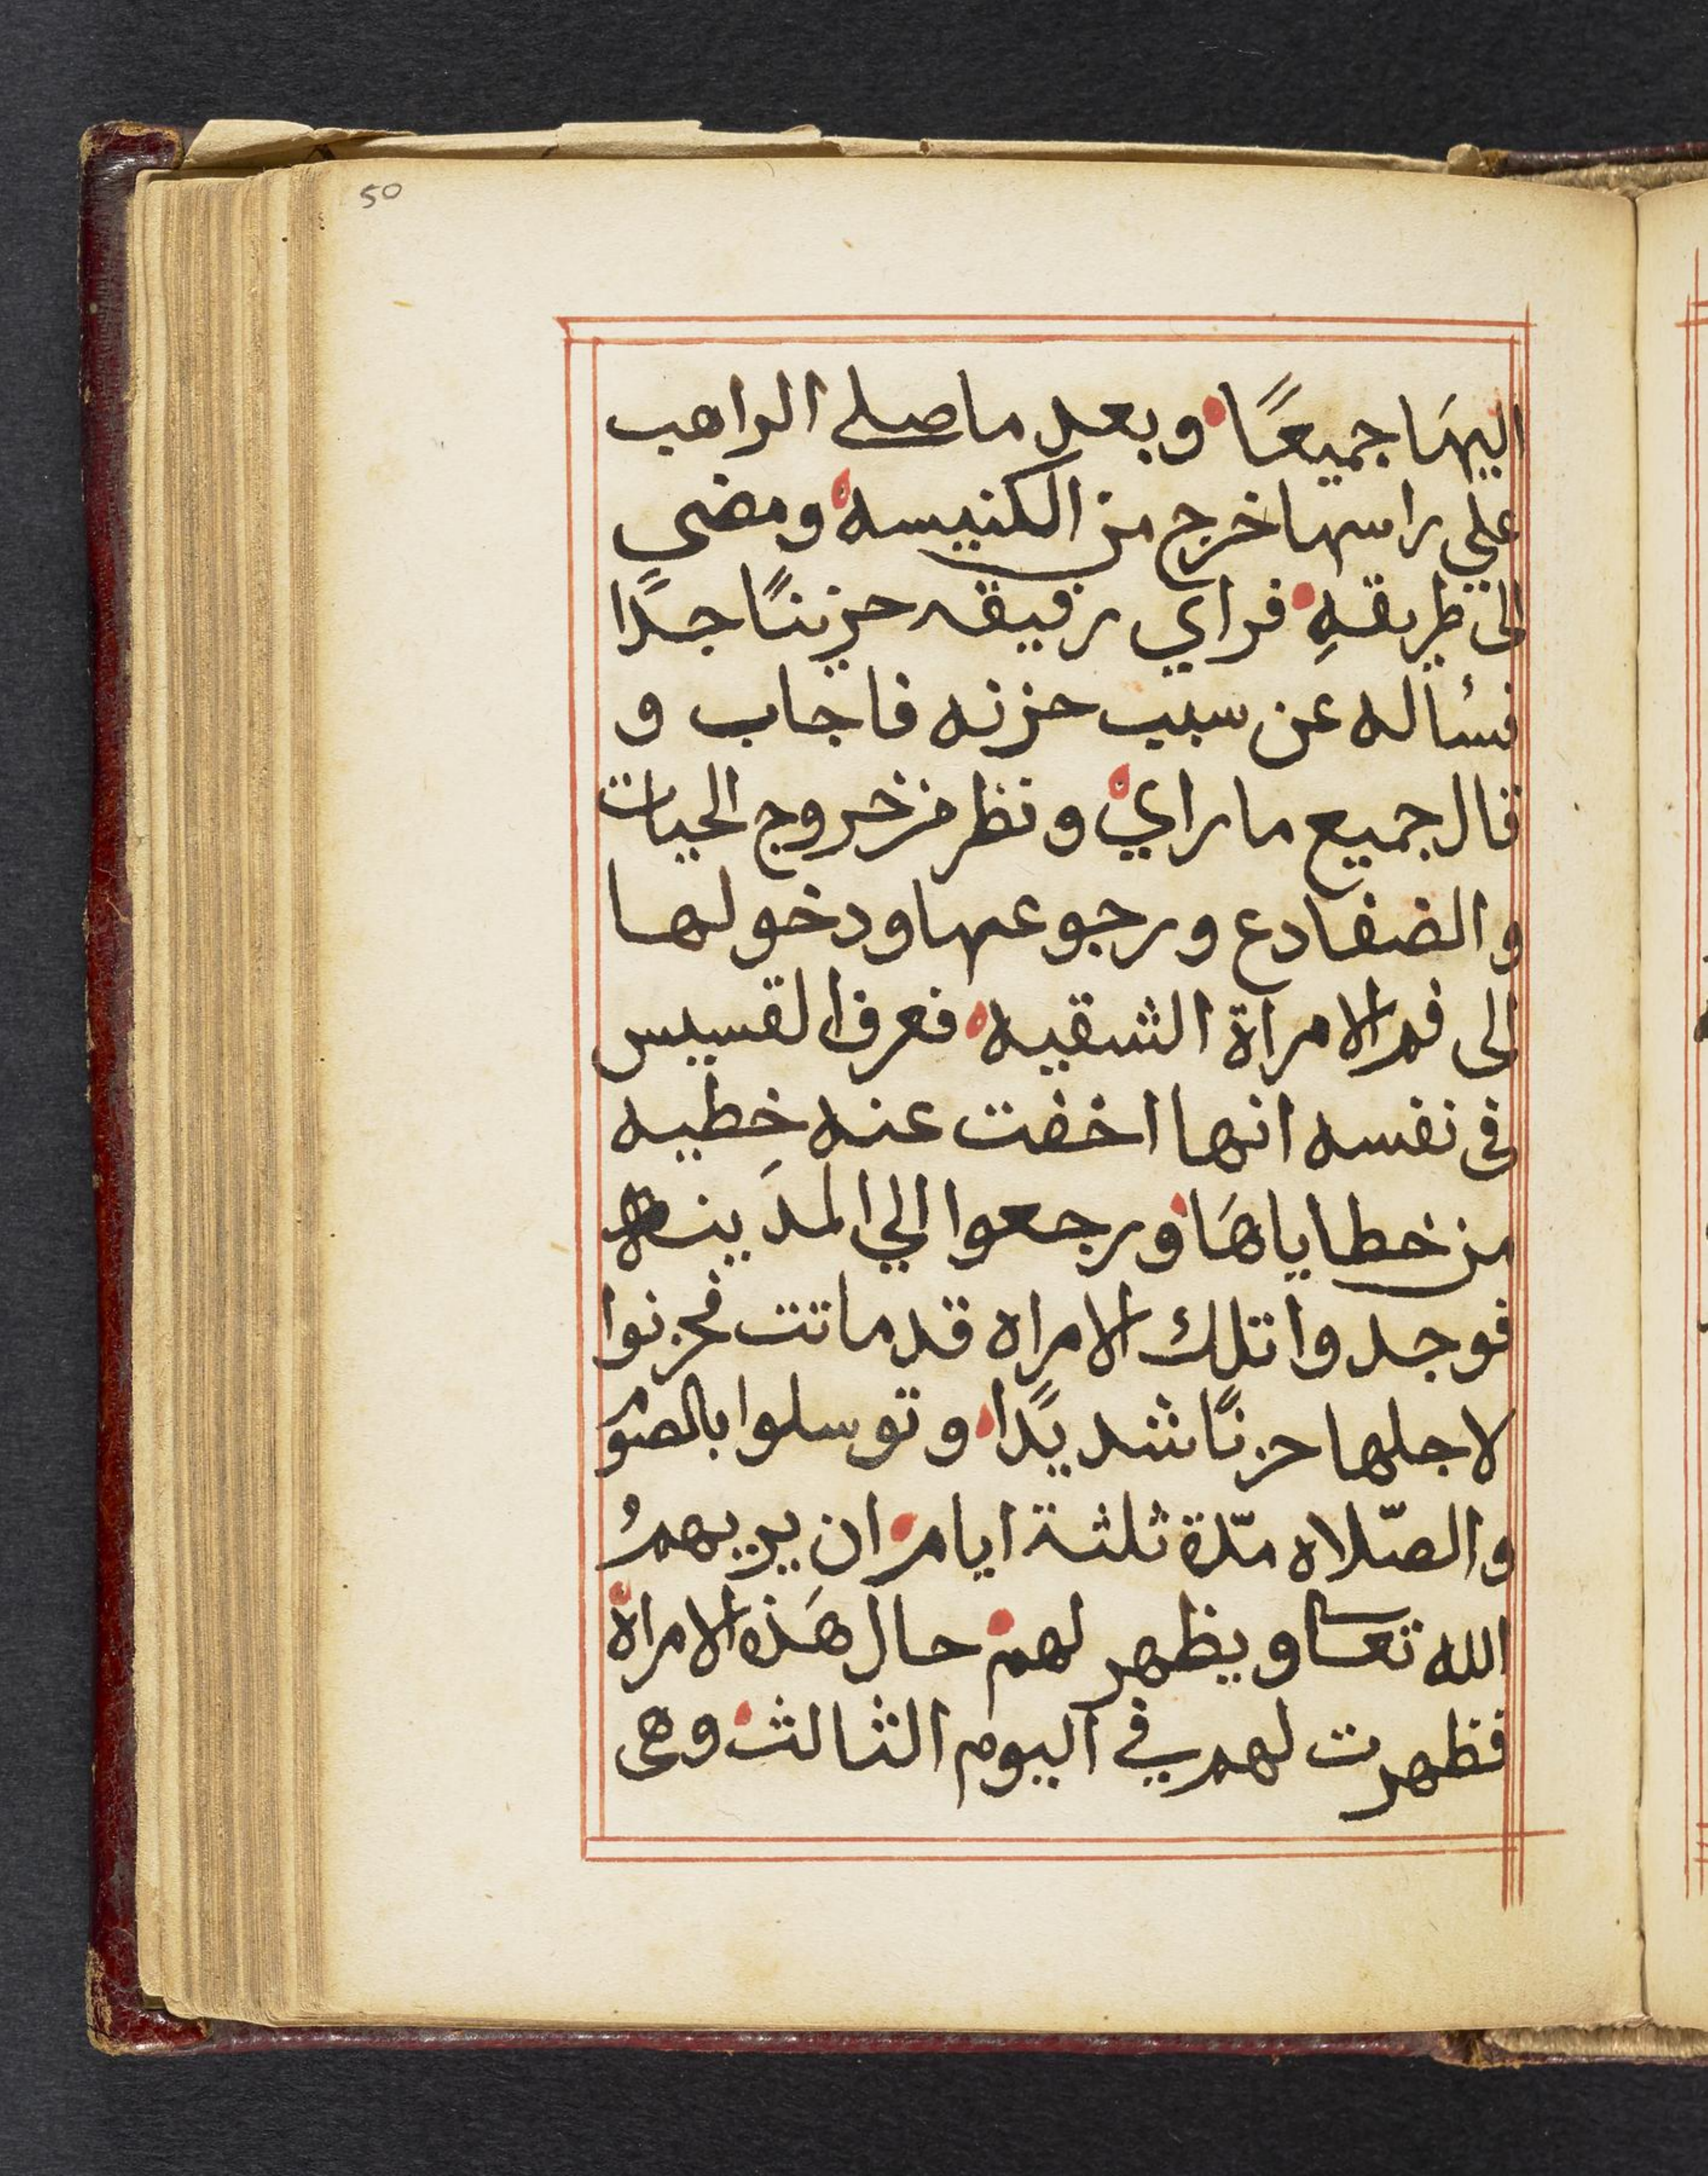 50
اليهَا جميعًا وبعد ما صلے الراهب
علي راسها خرج من الكنيسه ومضي
الى طريقهِ فراي رفيقه حزينًا جدًا
فسٔاله عن سبب حزنه فاجاب و
قال جميع ما راي ونظر من خروج الحيات
والضفادع ورجوعها ودخولها
الى فم الامراة الشقيه فعرف القسيس
في نفسه انها اخفت عنه خِطيه
من خطاياهَا ورجعوا الي المدَينه
فوجدوا تلك الامراه قد ماتت فحزنوا
لاجلها حزنًا شديدًا وتوسلوا بالصوم
والصّلاه مدّة ثلثة ايام ان يريهمُ
الله تعا ويظهر لهم حال هَذه الامراة
فظهرت لهم في اليوم الثالث وهى